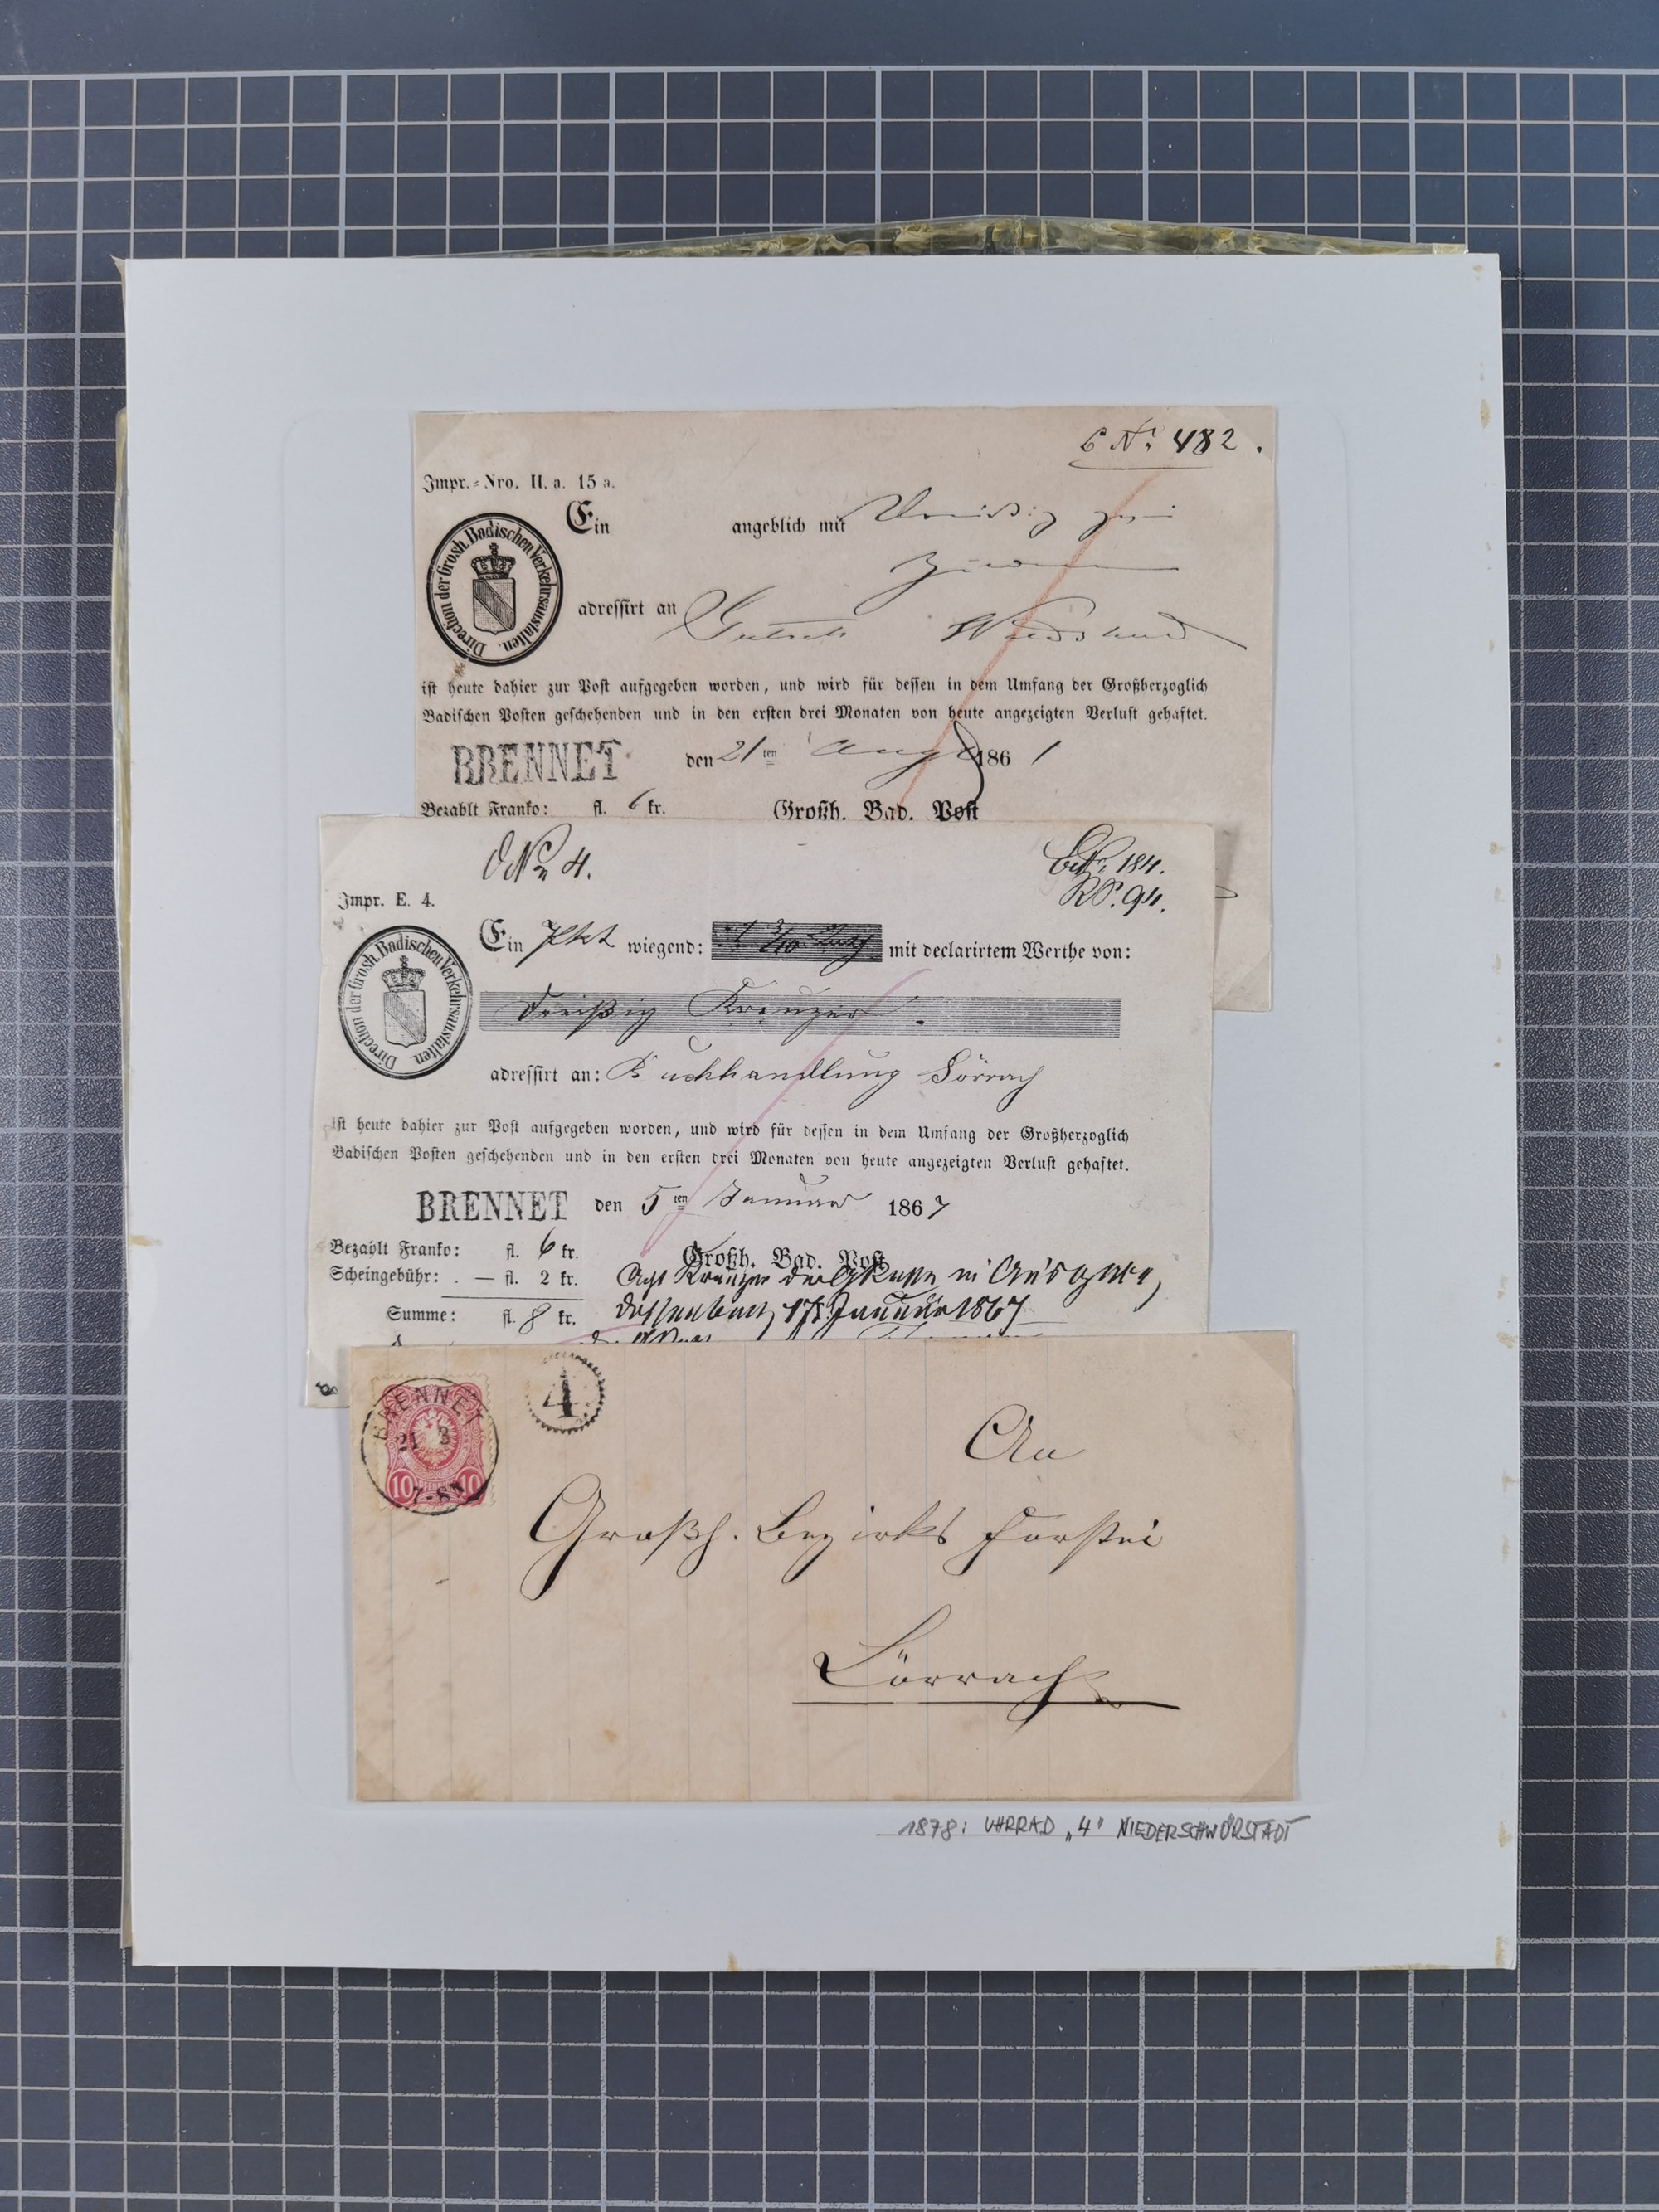 6 Nr. 482.
Impr.=Nro. II. a. 15 a.
Direction der Grosh. Badischen Verkehrsanstalten.
Ein angeblich mit
adressirt an
ist heute dahier zur Post aufgegeben worden, und wird für dessen in dem Umfang der Großherzoglich
Badischen Posten geschehenden und in den ersten drei Monaten von heute angezeigten Verlust gehaftet.
BRENNET den 21ten Aug 1861
Bezahlt Franko: fl. 6 kr. Großh. Bad. Post
No 4.
184.
94.
Impr. E. 4.
Direction der Grosh. Badischen Verkehrsanstalten.
Ein Pkt wiegend: mit declarirtem Werthe von:
Dreißig Kreuzer.
adressirt an: Buchhandlung Lörrach
ist heute dahier zur Post aufgegeben worden, und wird für dessen in dem Umfang der Großherzoglich
Badischen Posten geschehenden und in den ersten drei Monaten von heute angezeigten Verlust gehaftet.
BRENNET den 5ten Januar 1867
Bezahlt Franko: fl. 6 kr. Großh. Bad. Post
Scheingebühr: . — fl. 2 kr. Acht Kreuzer in Ausgabe,
Summe: fl. 8 kr. 17. Januar 1867
BRENNET
21 3
7-8N
10 PFENNIG 10
4
An
Großh. Bezirks Forstei
Lörrach
1878: UHRRAD „4" NIEDERSCHWÖRSTADT